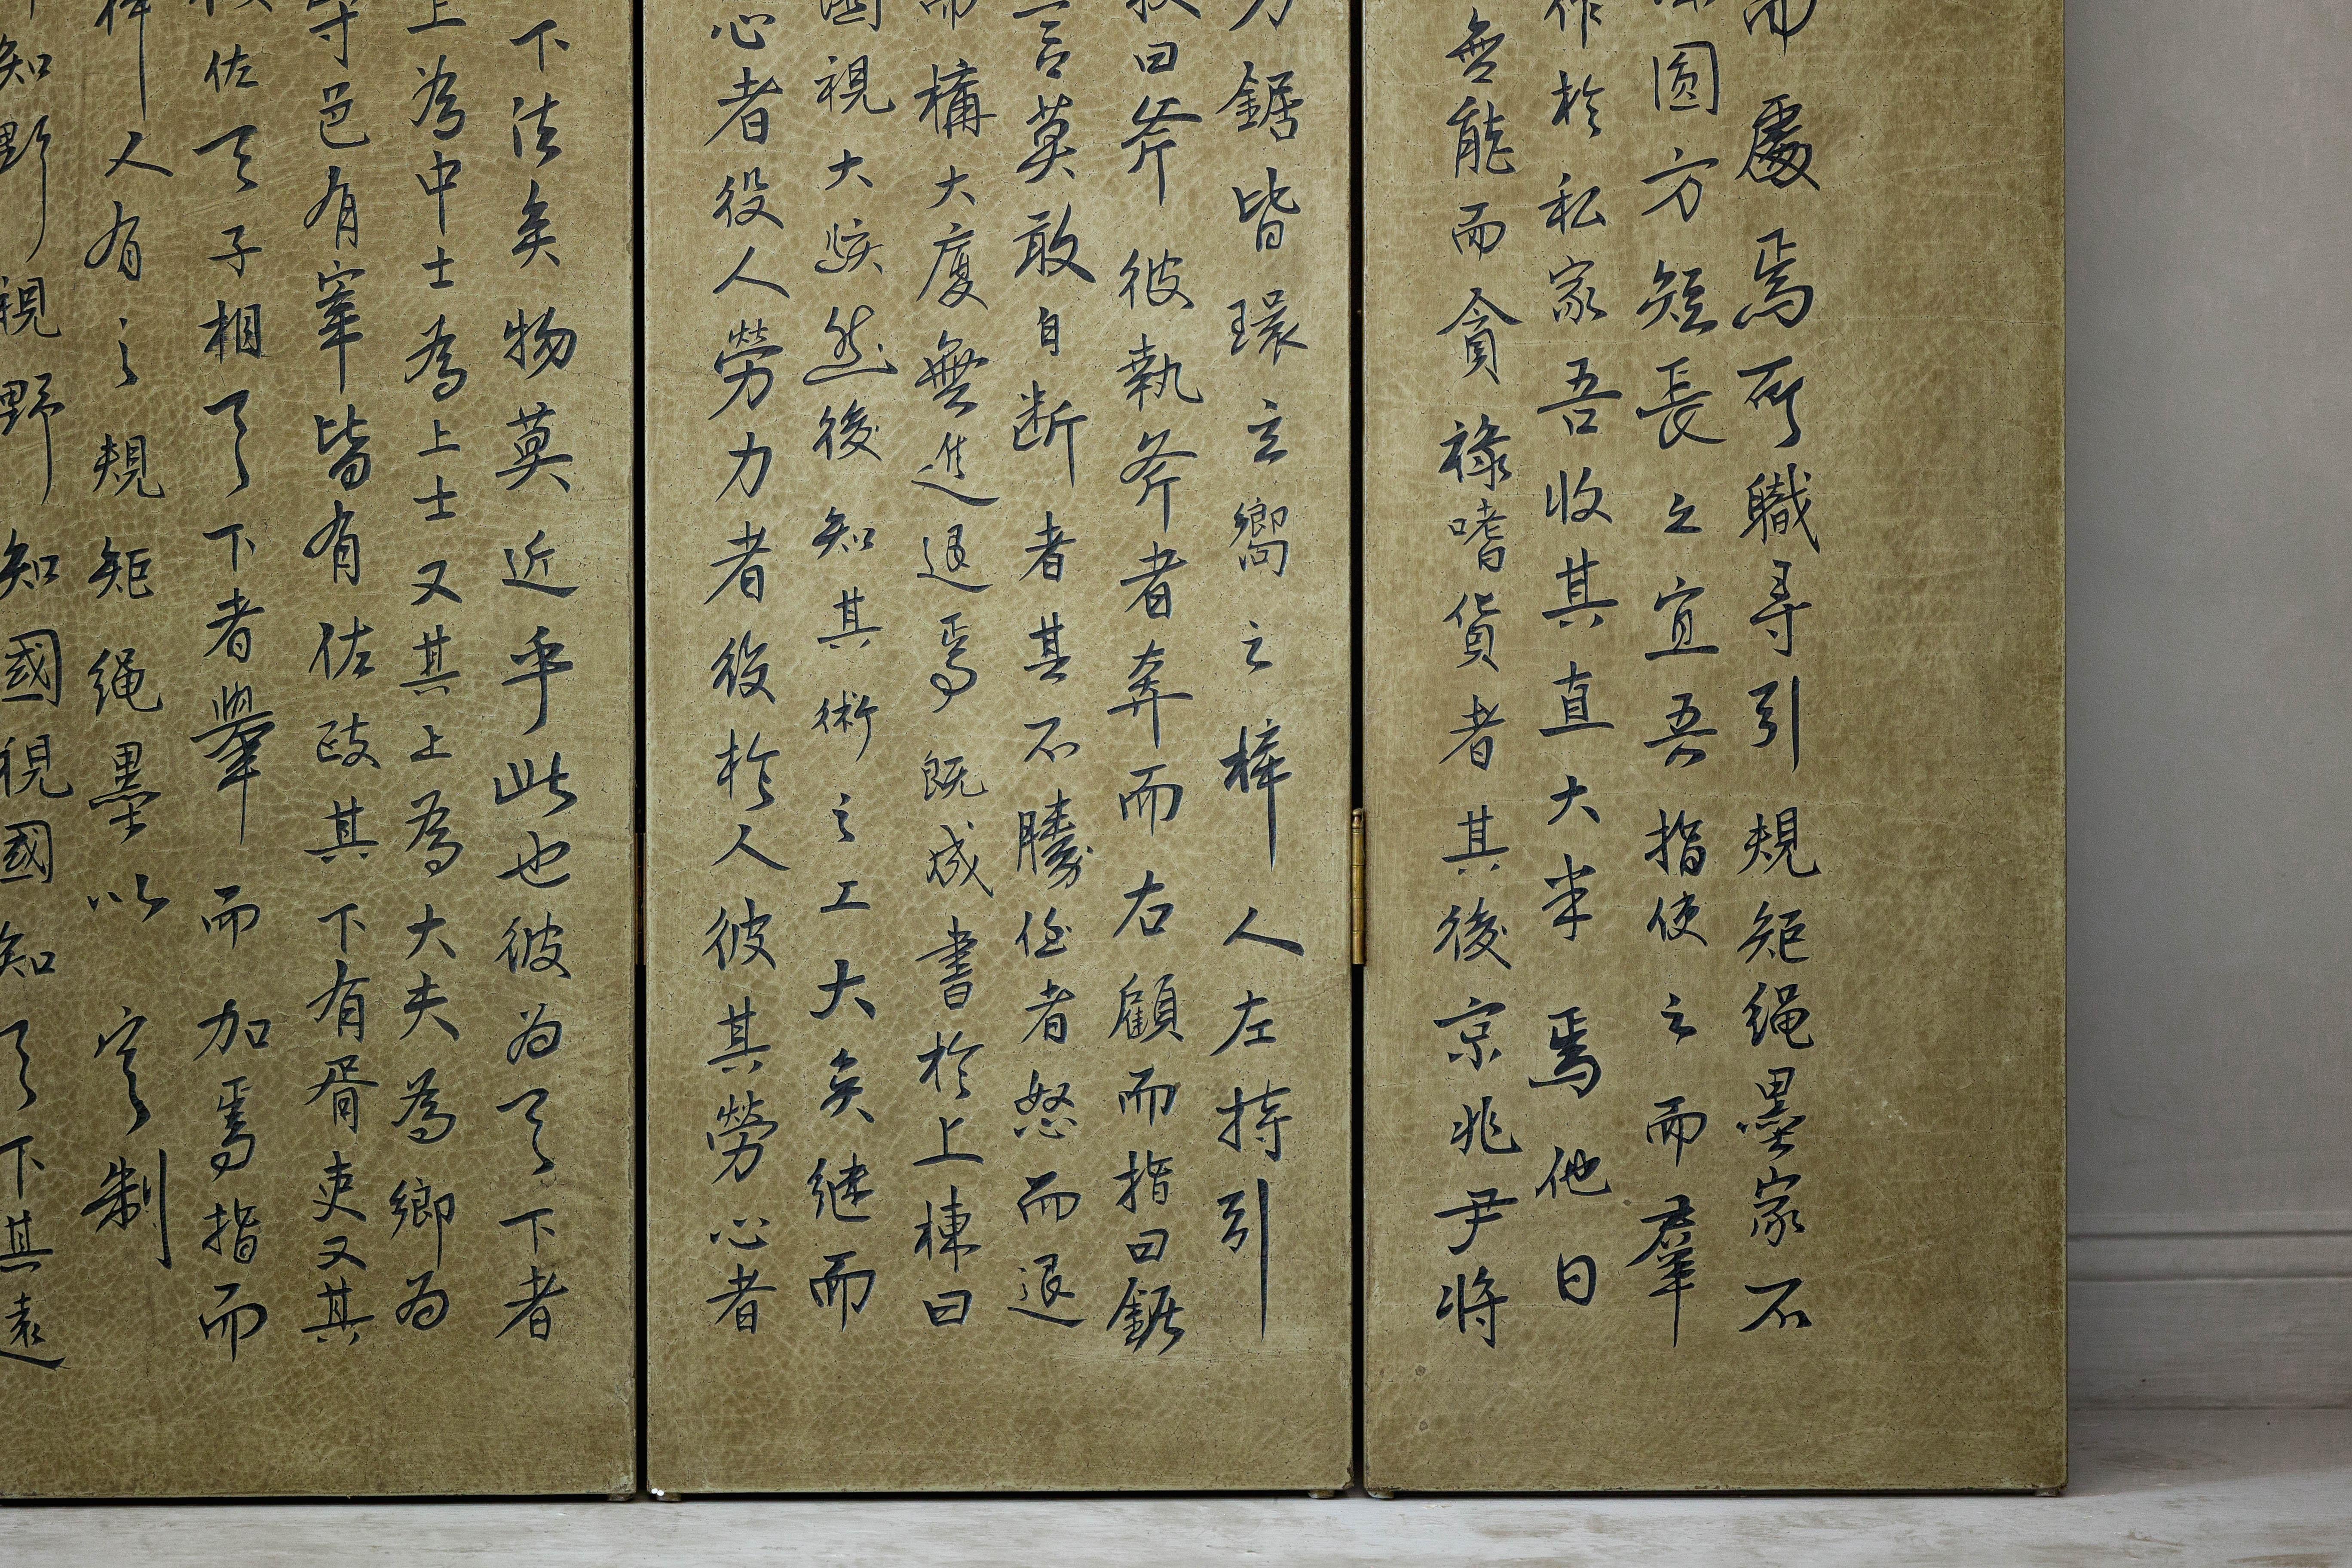 而處焉所職尋引規矩绳墨家不
圆方短長之宜吾指使之而羣
作於私家吾收其直大半焉他日
無能而貪祿嗜貨者其後京兆尹将
鋸皆環立嚮之梓人左持引
曰斧彼執斧者奔而右顧而指曰鋸
言莫敢自断者其不勝任者怒而退
而構大廈無進退焉既成書於上棟曰
視大駭然後知其術之工大矣继而
心者役人勞力者役於人彼其勞心者
下法矣物莫近乎此也彼为天下者
上為中士為上士又其上為大夫為卿为
守邑有宰皆有佐政其下有胥吏又其
佐天子相天下者舉而加焉指而
梓人有之規矩绳墨以定制
知野視野知國視國知天下其遠